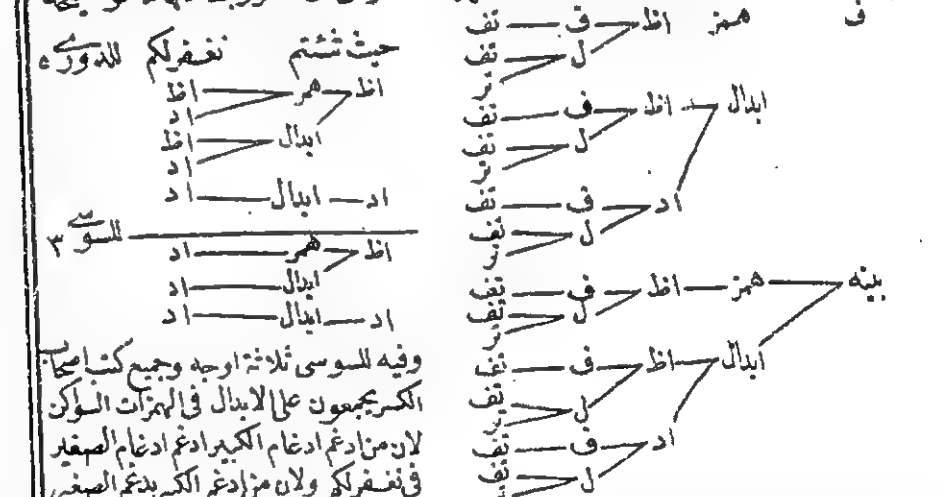 ف همز اظ ف تف
ل تف
تر
ابدال اظ ف تف
ل تف
تر
اد ف تف
ل تف
تر
بينه همز اظ ف تف
ل تف
تر
ابدال اظ ف تف
ل تف
تر
اد ف تف
ل تف
حيث شئتم نغفر لكم للدوري ٥
اظ همز اظ
اد
ابدال اظ
اد
اد ابدال اد
للسوسي ٣
اظ همز اد
ابدال اد
اد ابدال اد
وفيه للسوسى ثلاثة اوجه وجميع كتب اصحاب
الكسر يجمعون على الابدال فى الهمزات السواكن
لان من ادغم ادغام الكبير ادغم ادغام الصغير
فى نغفر لكم ولان من ادغم الكبير يدغم الصغير